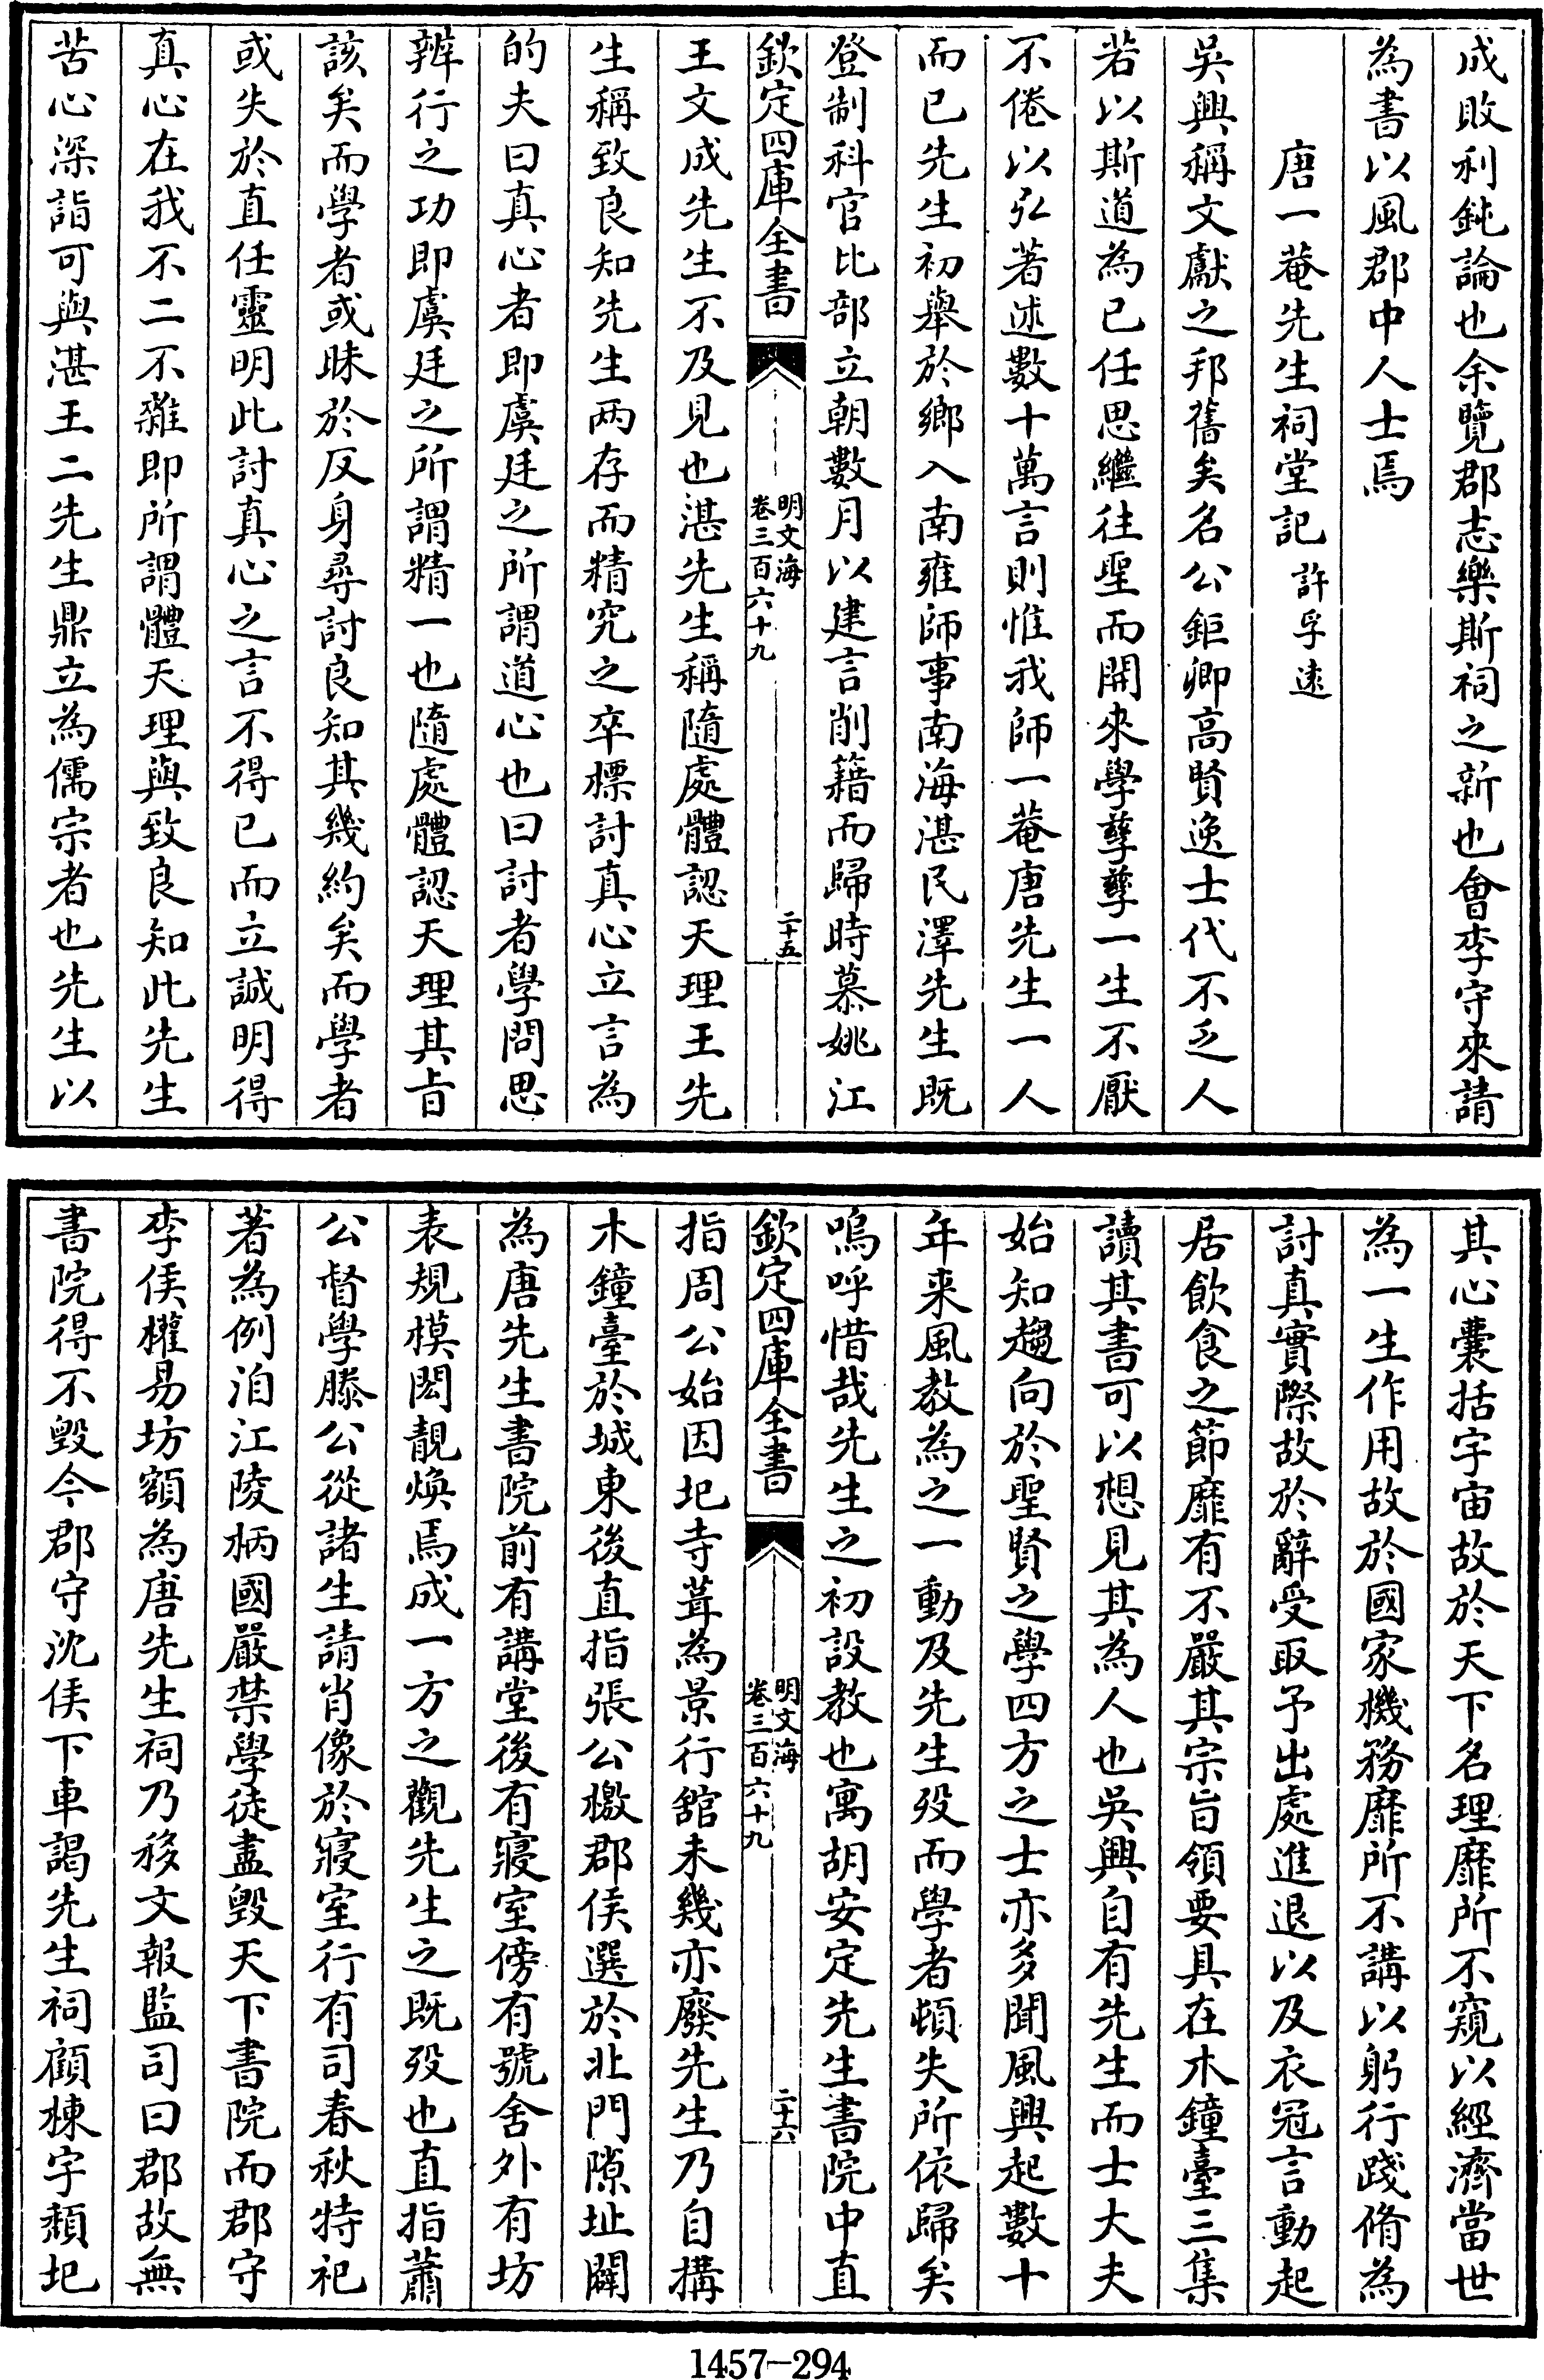 成敗利鈍論也余覽郡志樂斯祠之新也會李守來請
為書以風郡中人士焉
唐一菴先生祠堂記 許孚遠
吳興稱文獻之邦舊矣名公鉅卿高賢逸士代不乏人
若以斯道為已任思繼往聖而開來學孳孳一生不厭
不倦以弘著述數十萬言則惟我師一菴唐先生一人
而已先生初舉於鄉入南雍師事南海湛民澤先生既
登制科官比部立朝數月以建言削籍而歸時慕姚江
欽定四庫全書
明文海
卷三百六十九
二十五
王文成先生不及見也湛先生稱隨處體認天理王先
生稱致良知先生两存而精究之卒標討真心立言為
的夫曰真心者即虞廷之所謂道心也曰討者學問思
辨行之功即虞廷之所謂精一也隨處體認天理其旨
該矣而學者或昧於反身尋討良知其幾約矣而學者
或失於直任靈明此討真心之言不得已而立誠明得
真心在我不二不雜即所謂體天理與致良知此先生
苦心深詣可與湛王二先生鼎立為儒宗者也先生以
其心囊括宇宙故於天下名理靡所不窺以經濟當世
為一生作用故於國家機務靡所不講以躬行踐脩為
討真實際故於辭受取予出處進退以及衣冠言動起
居飲食之節靡有不嚴其宗旨領要具在木鐘臺三集
讀其書可以想見其為人也吳興自有先生而士大夫
始知趨向於聖賢之學四方之士亦多聞風興起數十
年来風教為之一動及先生歿而學者頓失所依歸矣
嗚呼惜哉先生之初設教也寓胡安定先生書院中直
欽定四庫全書
明文海
卷三百六十九
二十六
指周公始因圯寺葺為景行舘未幾亦廢先生乃自搆
木鐘臺於城東後直指張公檄郡侯選於北門隙址闢
為唐先生書院前有講堂後有寢室傍有號舍外有坊
表規模閎靚煥焉成一方之觀先生之既歿也直指蕭
公督學滕公從諸生請肖像於寢室行有司春秋特祀
著為例洎江陵柄國嚴禁學徒盡毀天下書院而郡守
李侯權易坊額為唐先生祠乃移文報監司曰郡故無
書院得不毀今郡守沈侯下車謁先生祠顧棟宇頽圯
1457-294